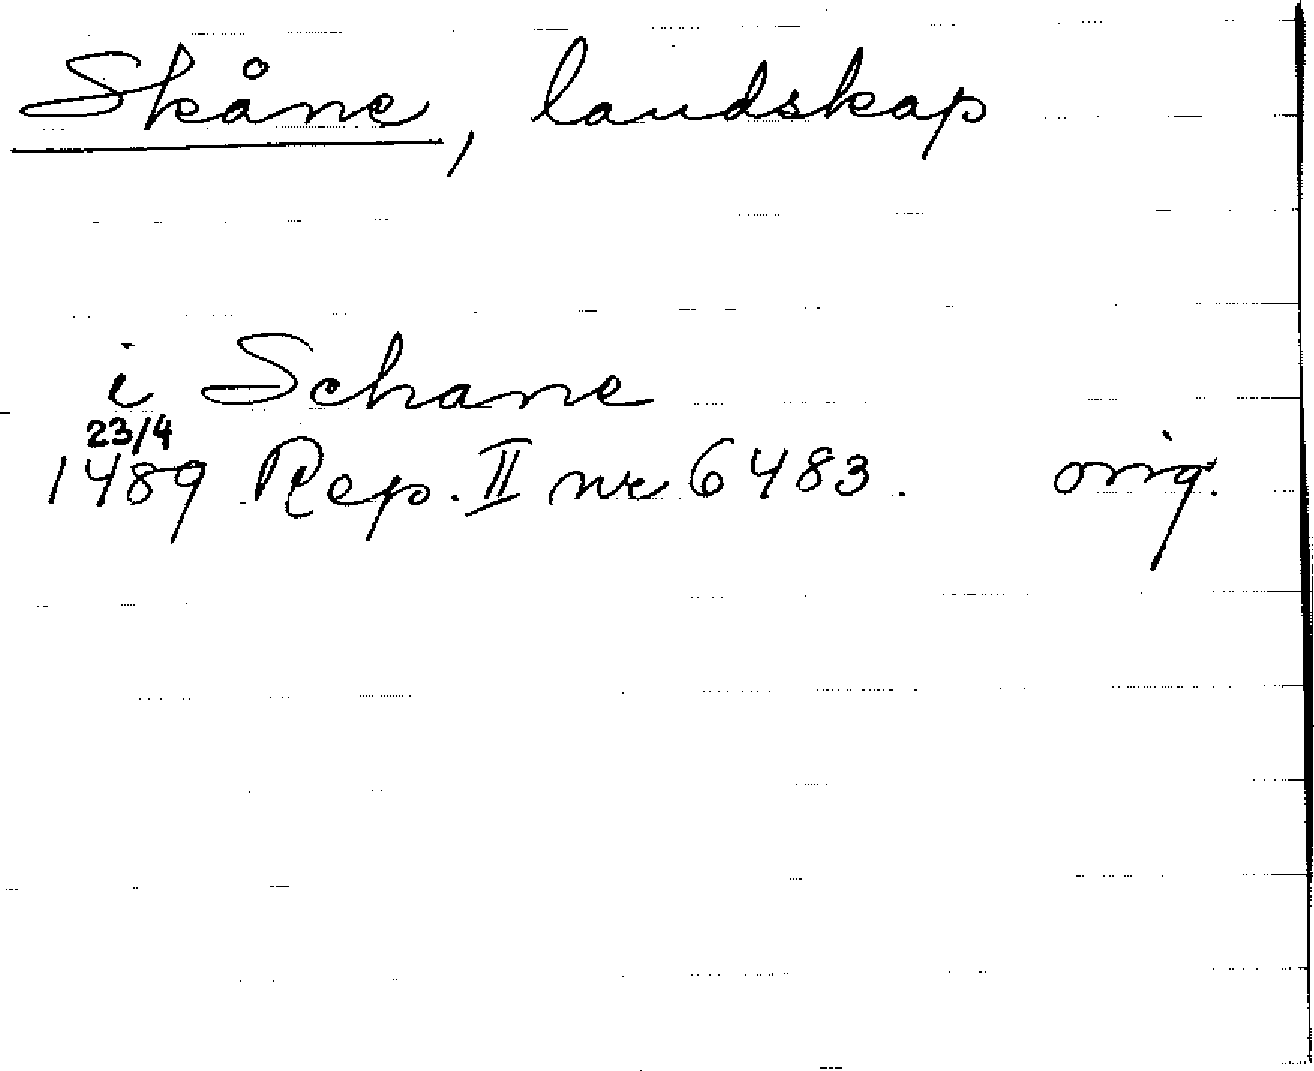 Skåne, landskap
i Schane
23/4
1489 Rep. II nr 6483. orig.